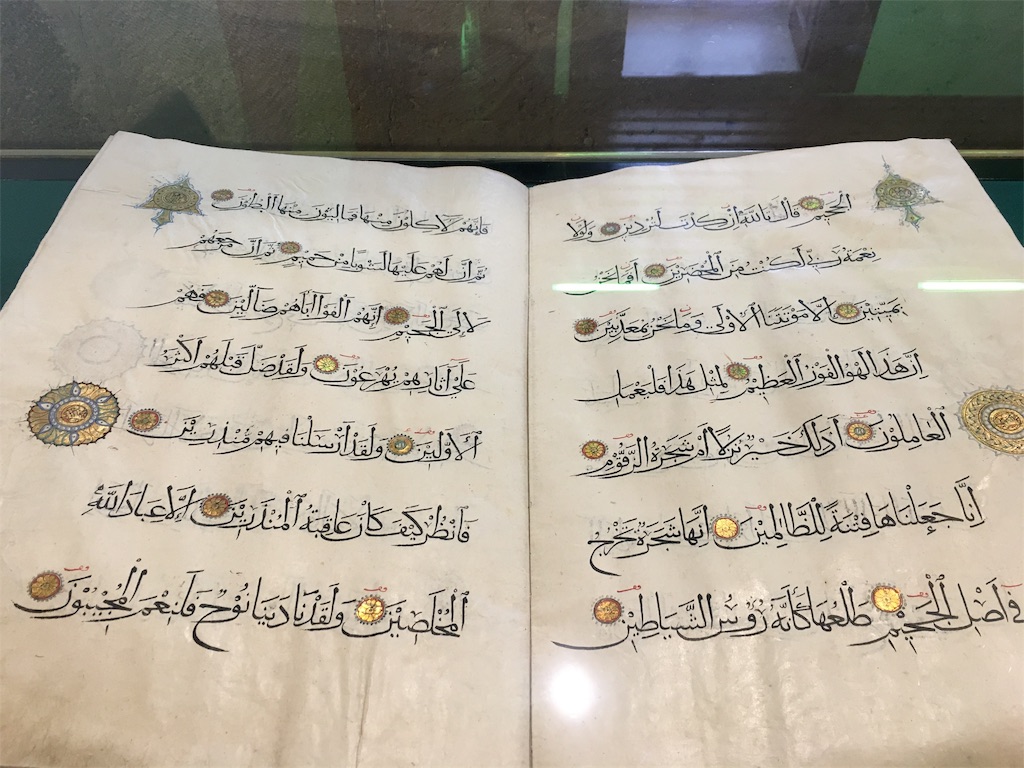 الجحيم قال تالله ان كدت لتردين ولولا
نعمة ربي لكنت من المحضرين افما نحن
بميتين الا موتتنا الاولى وما نحن بمعذبين
ان هذا لهو الفوز العظيم لمثل هذا فليعمل
العاملون اذلك خير نزلا ام شجرة الزقوم
انا جعلناها فتنة للظالمين انها شجرة تخرج
في اصل الجحيم طلعها كانه رؤس الشياطين
فانهم لاكلون منها فمالئون منها البطون
ثم ان لهم عليها لشوبا من حميم ثم ان مرجعهم
لالى الجحيم انهم الفوا اباهم ضالين فهم
على اثارهم يهرعون ولقد ضل قبلهم اكثر
الاولين ولقد ارسلنا فيهم منذرين
فانظر كيف كان عاقبة المنذرين الا عباد الله
المخلصين ولقد نادينا نوح فلنعم المجيبون